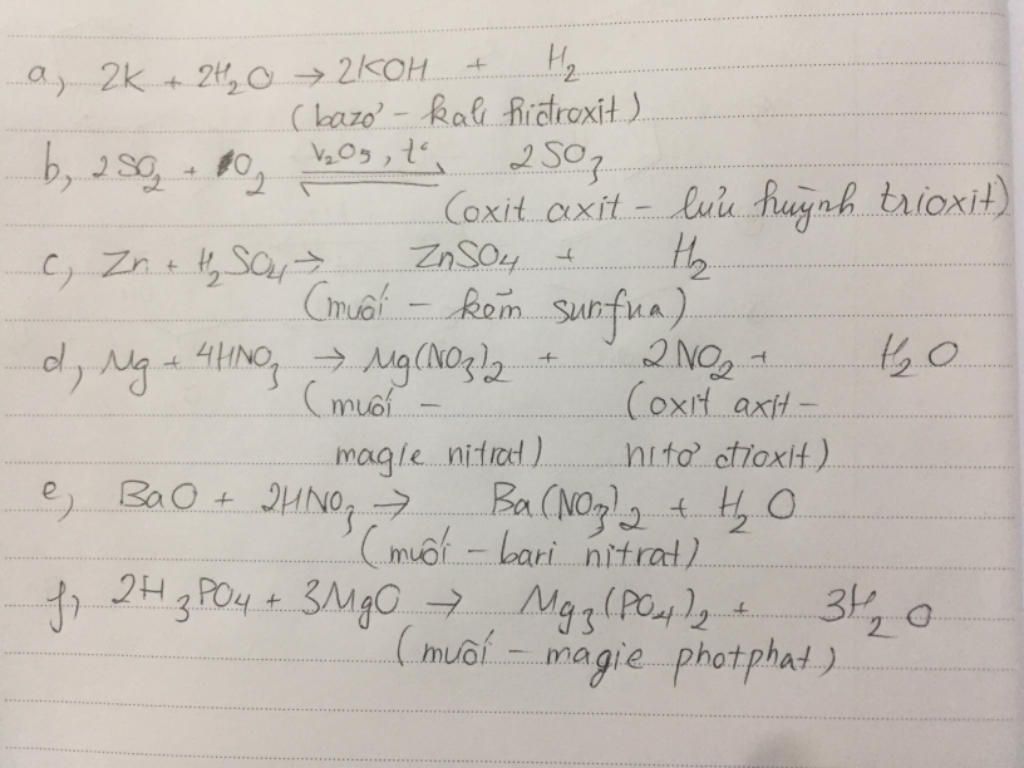 a, 2K + 2H₂O → 2KOH + H₂
(bazơ - kali hiđroxit)
b, 2SO₂ + O₂ ⇌ V₂O₅, t° 2SO₃
(oxit axit - lưu huỳnh trioxit)
c, Zn + H₂SO₄ → ZnSO₄ + H₂
(muối - kẽm sunfua)
d, Mg + 4HNO₃ → Mg(NO₃)₂ + 2NO₂ + H₂O
(muối - (oxit axit -
magie nitrat) nitơ đioxit)
e, BaO + 2HNO₃ → Ba(NO₃)₂ + H₂O
(muối - bari nitrat)
f, 2H₃PO₄ + 3MgO → Mg₃(PO₄)₂ + 3H₂O
(muối - magie photphat)